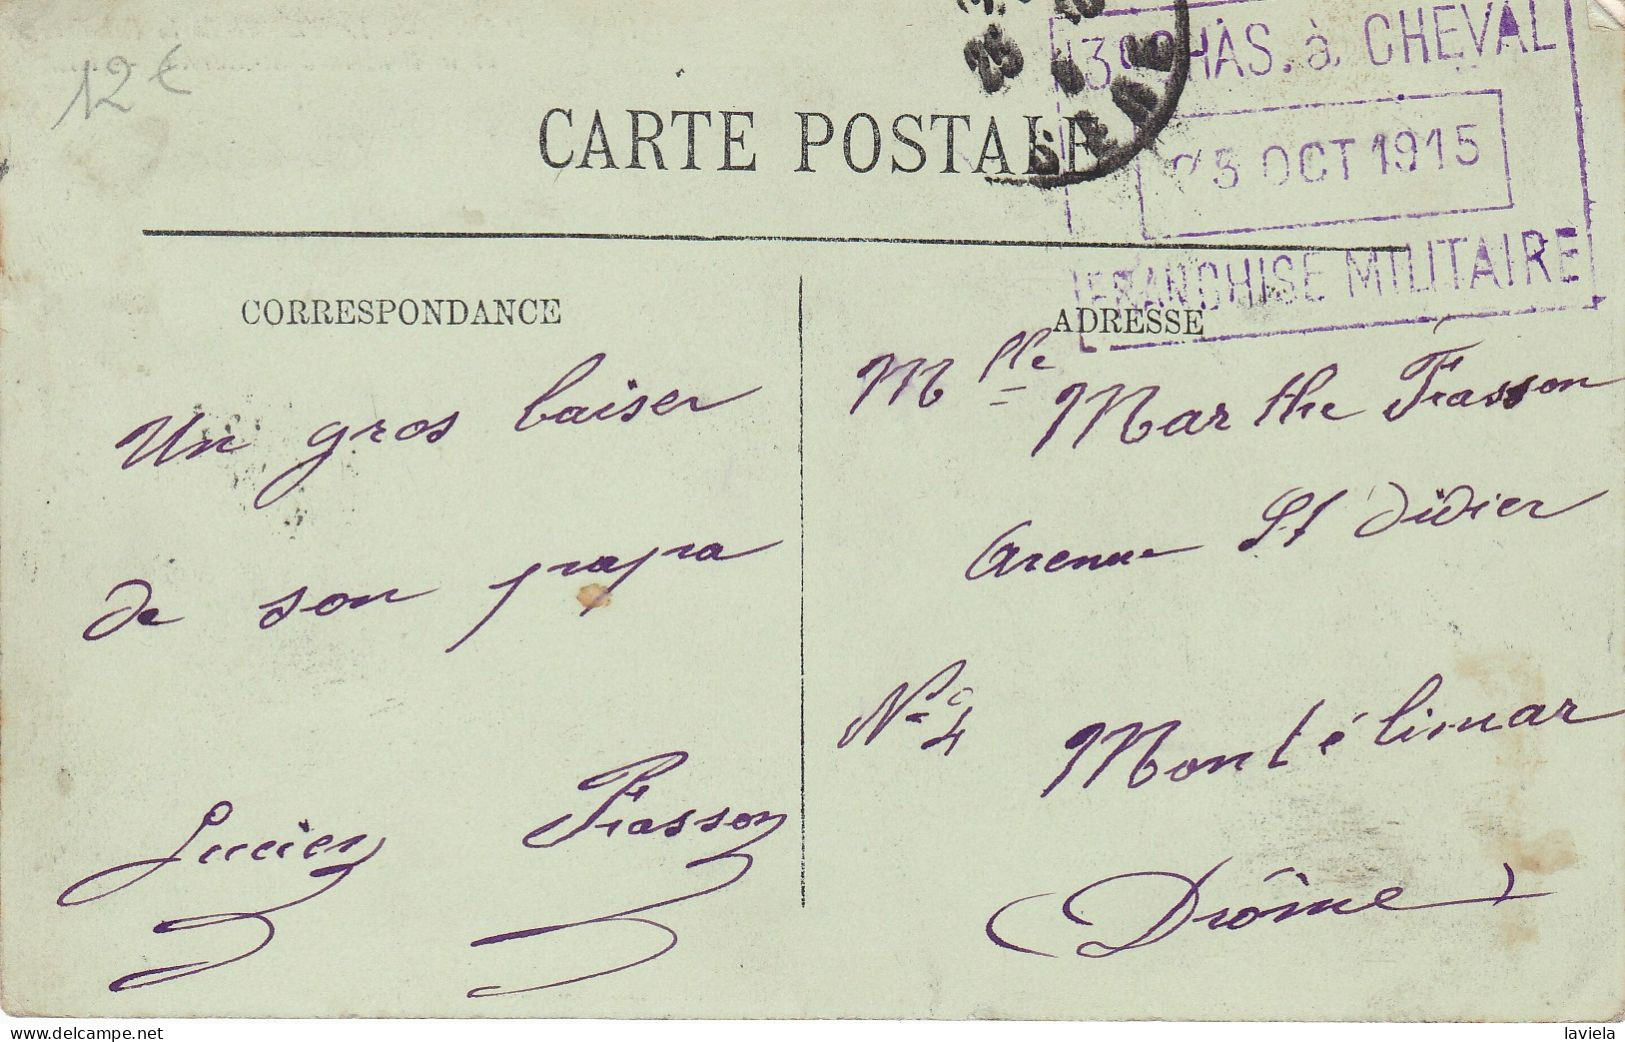 12 €
CARTE POSTALE
CHAS. à CHEVAL
25 OCT 1915
FRANCHISE MILITAIRE
CORRESPONDANCE
Un gros baiser
de son papa
Lucien Frasson
ADRESSE
Mlle Marthe Frasson
Avenue St Didier
No 4
Montélimar
Drôme
www.delcampe.net
laviela